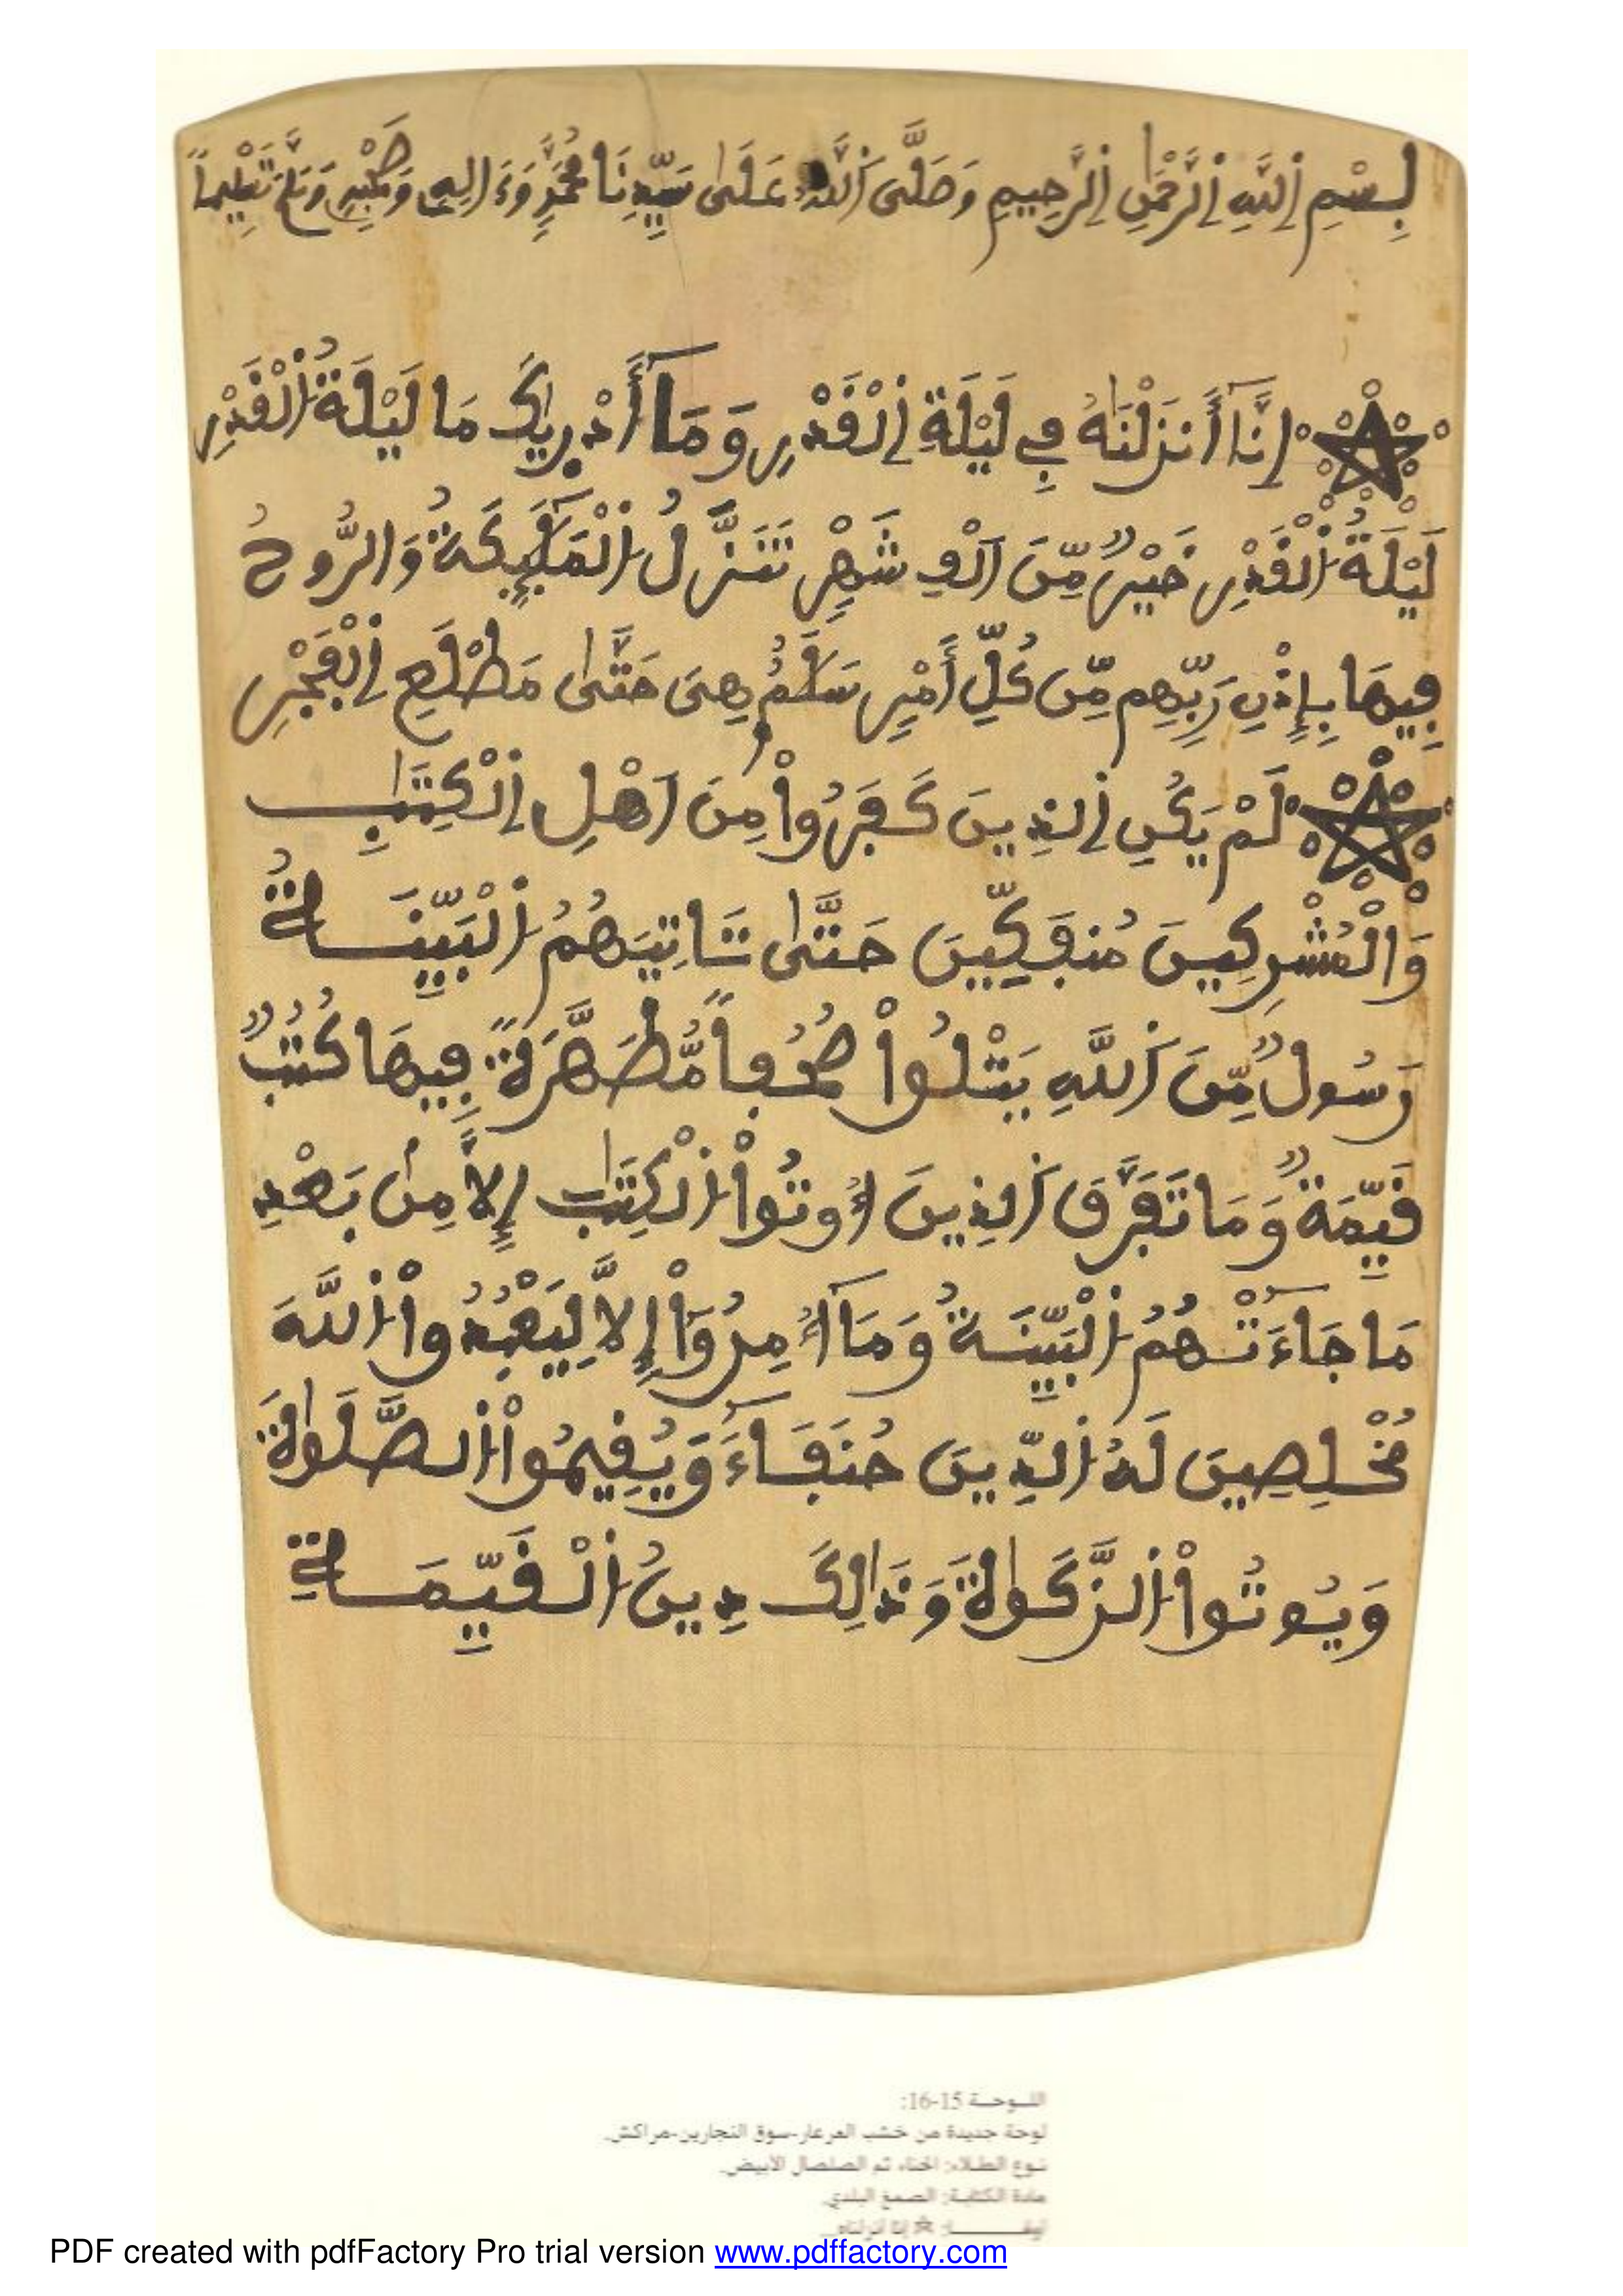 بِسْمِ اِللَّهِ اِلرَّحْمَٰنِ اِلرَّحِيمِ وَصَلَّى اَللَّهُ عَلَىٰ سَيِّدِنَا مُحَمَّدٍ وَءَالِهِ وَصَحْبِهِ وَسَلَّمَ تَسْلِيماً
إِنَّآ أَنزَلْنَٰهُ فِے لَيْلَةِ اِلْقَدْرِ وَمَآ أَدْر۪يٰكَ مَا لَيْلَةُ اُلْقَدْرِ
لَيْلَةُ اُلْقَدْرِ خَيْرٌ مِّنَ اَلْفِ شَهْرٍ تَنَزَّلُ اُلْمَلَٰٓئِكَةُ وَالرُّوحُ
فِيهَا بِإِذْنِ رَبِّهِم مِّن كُلِّ أَمْرٍ سَلَٰمٌ هِىَ حَتَّىٰ مَطْلَعِ اِلْفَجْرِ
لَمْ يَكُنِ اِلذِينَ كَفَرُواْ مِنَ اَهْلِ اِلْكِتَٰبِ
وَالْمُشْرِكِينَ مُنفَكِّينَ حَتَّىٰ تَاتِيَهُمُ اُلْبَيِّنَةُ
رَسُولٌ مِّنَ اَللَّهِ يَتْلُواْ صُحُفاً مُّطَهَّرَةً فِيهَا كُتُبٌ
قَيِّمَةٌ وَمَا تَفَرَّقَ اَلذِينَ أُوتُواْ اُلْكِتَٰبَ إِلاَّ مِنۢ بَعْدِ
مَا جَآءَتْهُمُ اُلْبَيِّنَةُ وَمَآ أُمِرُوٓاْ إِلاَّ لِيَعْبُدُواْ اُللَّهَ
مُخْلِصِينَ لَهُ اُلدِّينَ حُنَفَآءَ وَيُقِيمُواْ اُلصَّلَوٰةَ
وَيُوتُواْ اُلزَّكَوٰةَ وَذَٰلِكَ دِينُ اُلْقَيِّمَةِ
اللـوحـة 15-16:
لوحة جديدة من خشب العرعار-سوق النجارين-مراكش.
نـوع الطـلاء: الحناء ثم الصلصال الأبيض.
مادة الكتابـة: الصمغ البلدي.
إنا أنزلناه...
PDF created with pdfFactory Pro trial version www.pdffactory.com